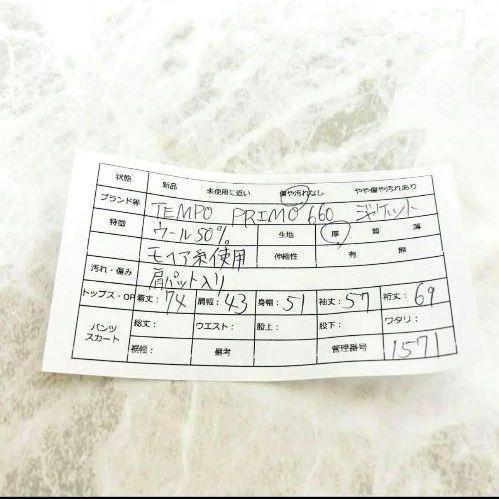 状態 新品 未使用に近い 傷や汚れなし やや傷や汚れあり
ブランド等 TEMPO PRIMO 660 ジャケット
特徴 ウール50% 生地 厚 普 薄
モヘア糸使用 伸縮性 有 無
汚れ・傷み 肩パット入り
トップス・OP 着丈:74 肩幅:43 身幅:51 袖丈:57 裄丈:69
パンツ スカート 総丈: ウエスト: 股上: 股下: ワタリ:
裾幅: 備考 管理番号 1571